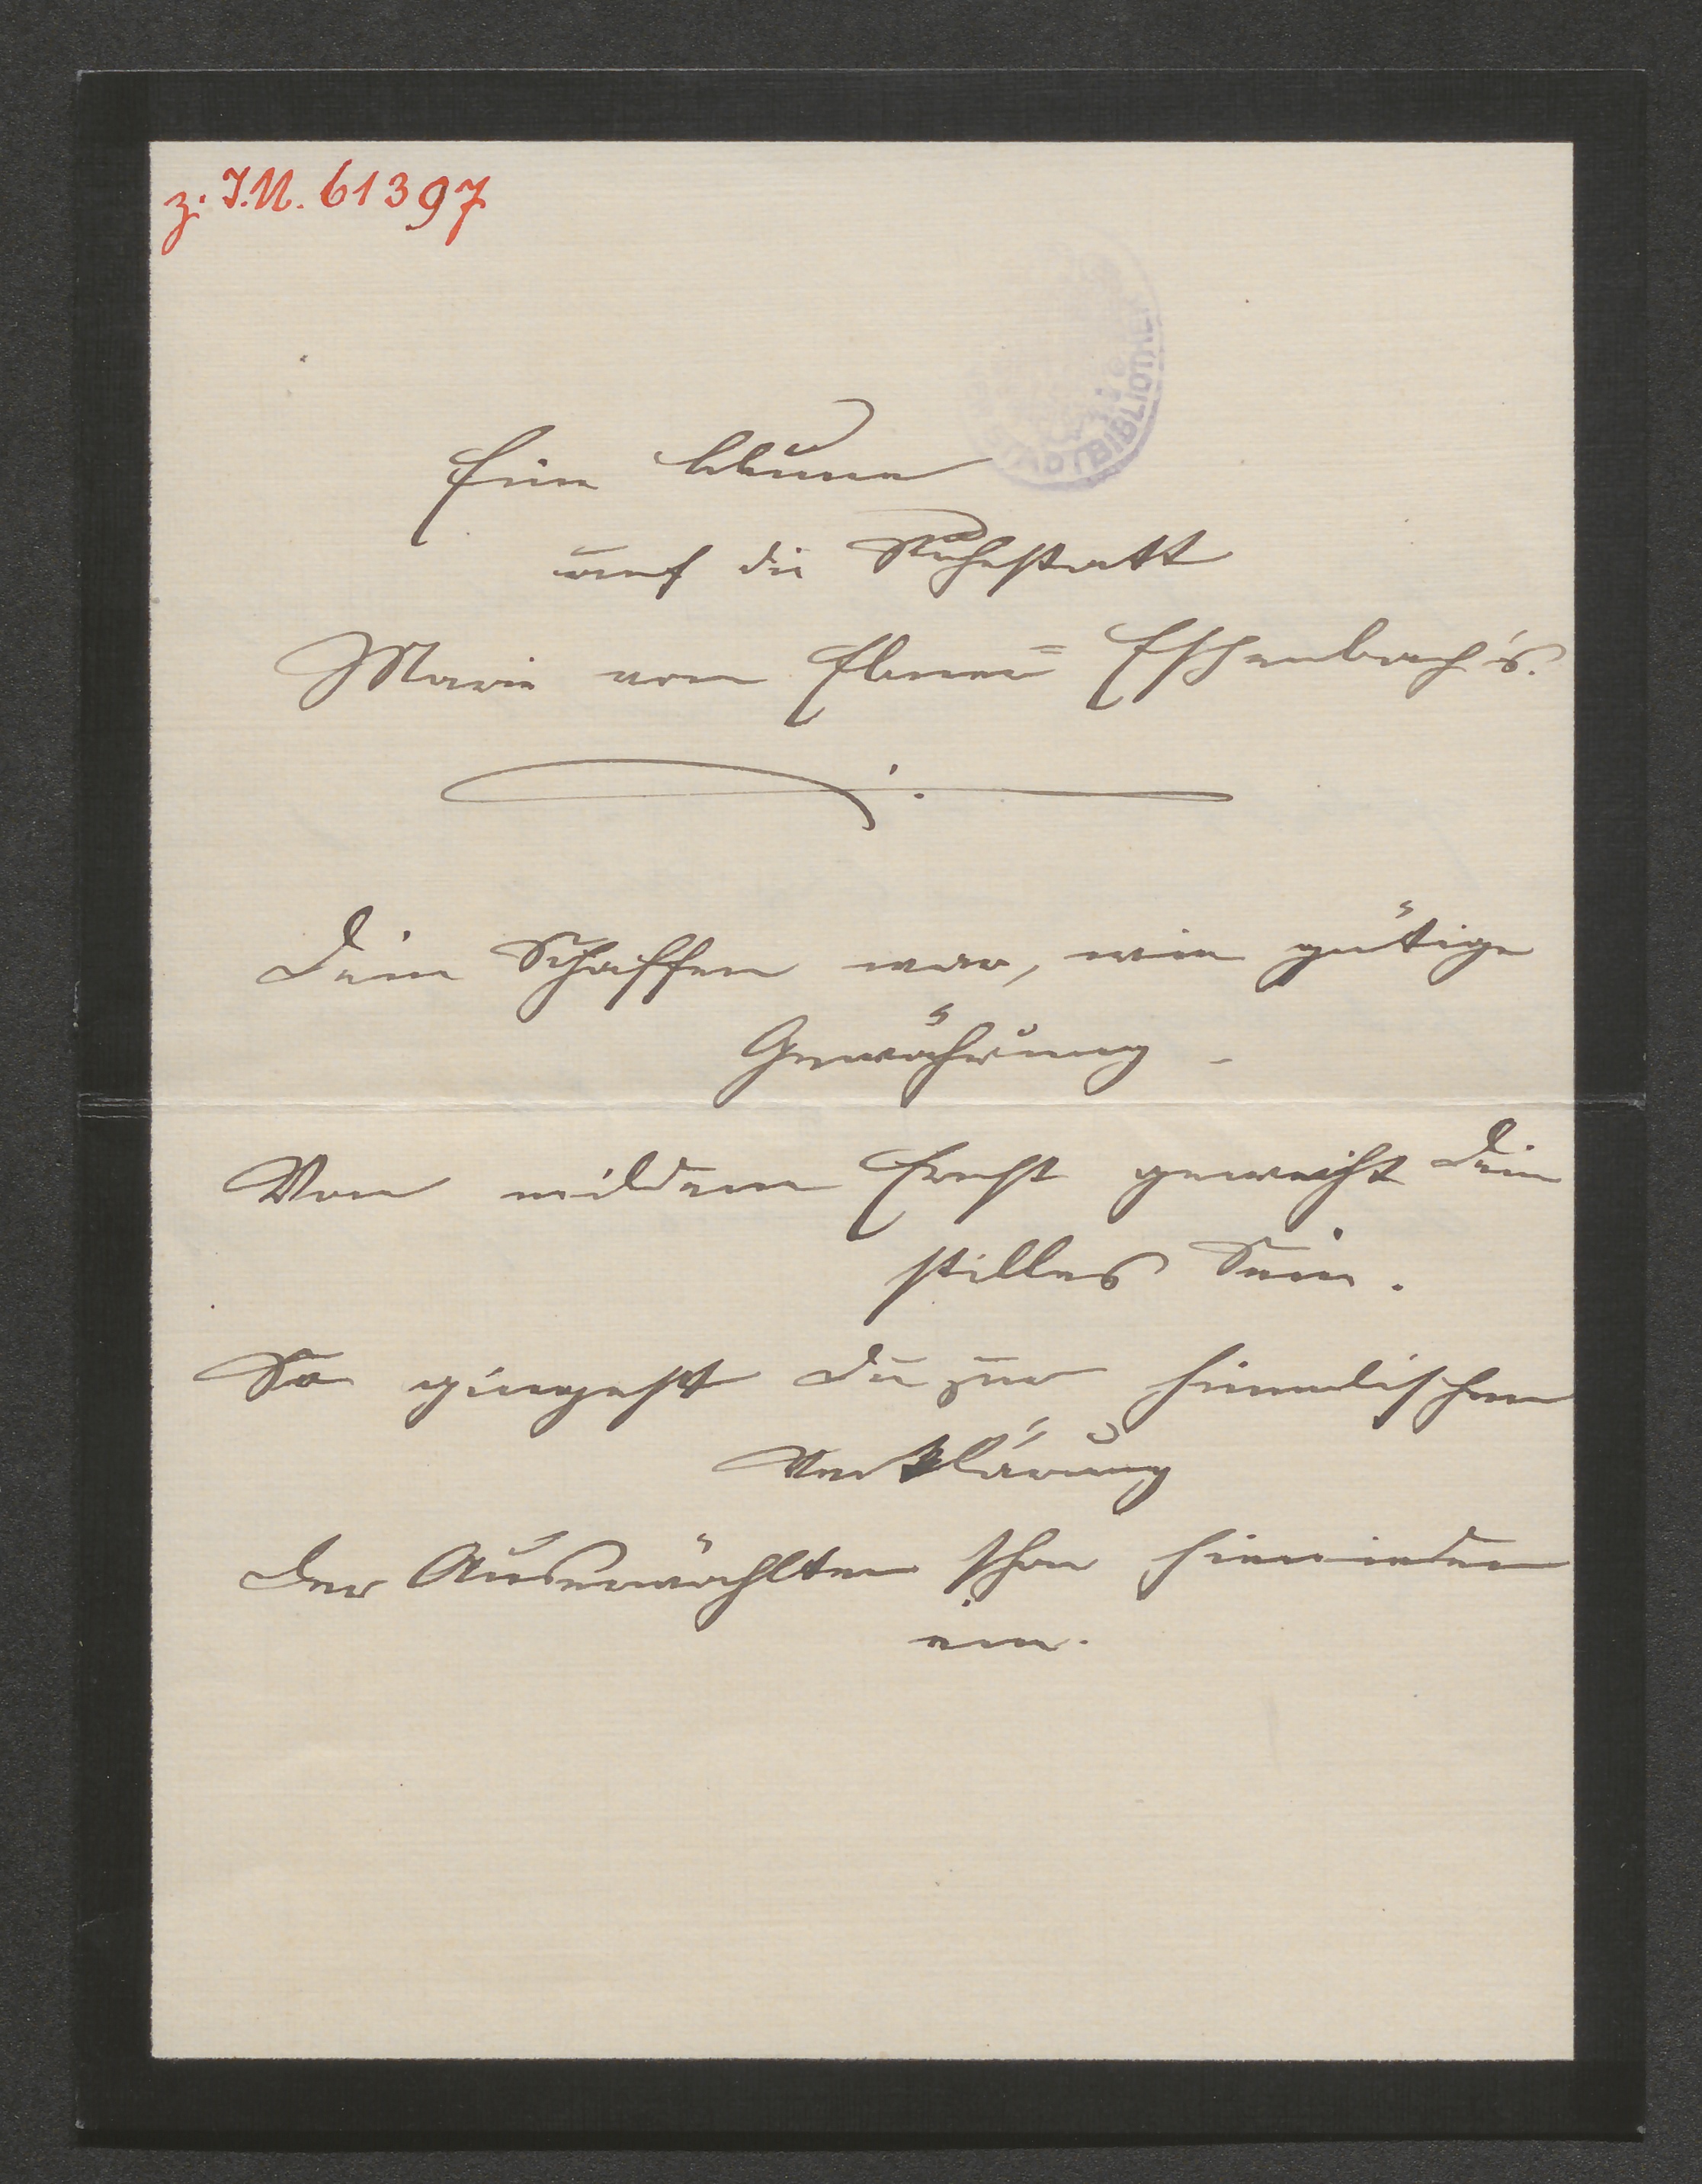 z. I.N. 61397
STADTBIBLIOTHEK
Eine Blume
auf die Ruhestatt
Marie von Ebner=Eschenbach's.
Dein Schaffen war, wie gütige
Gewährung –
Von mildem Ernst geweiht Dein
stilles Sein.
So gingest Du zur himmlischen
Verklärung
Der Auserwählten schon hienieden
ein.